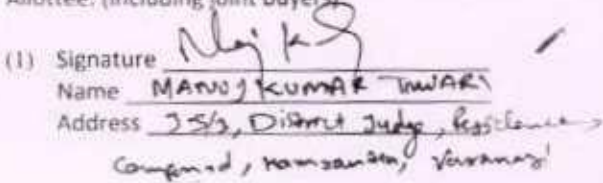 Allottee: (including joint buyer)
(1) Signature
Name MANOJ KUMAR TIWARI
Address J 5/3, District Judge, Residence,
Compound, Varanasi